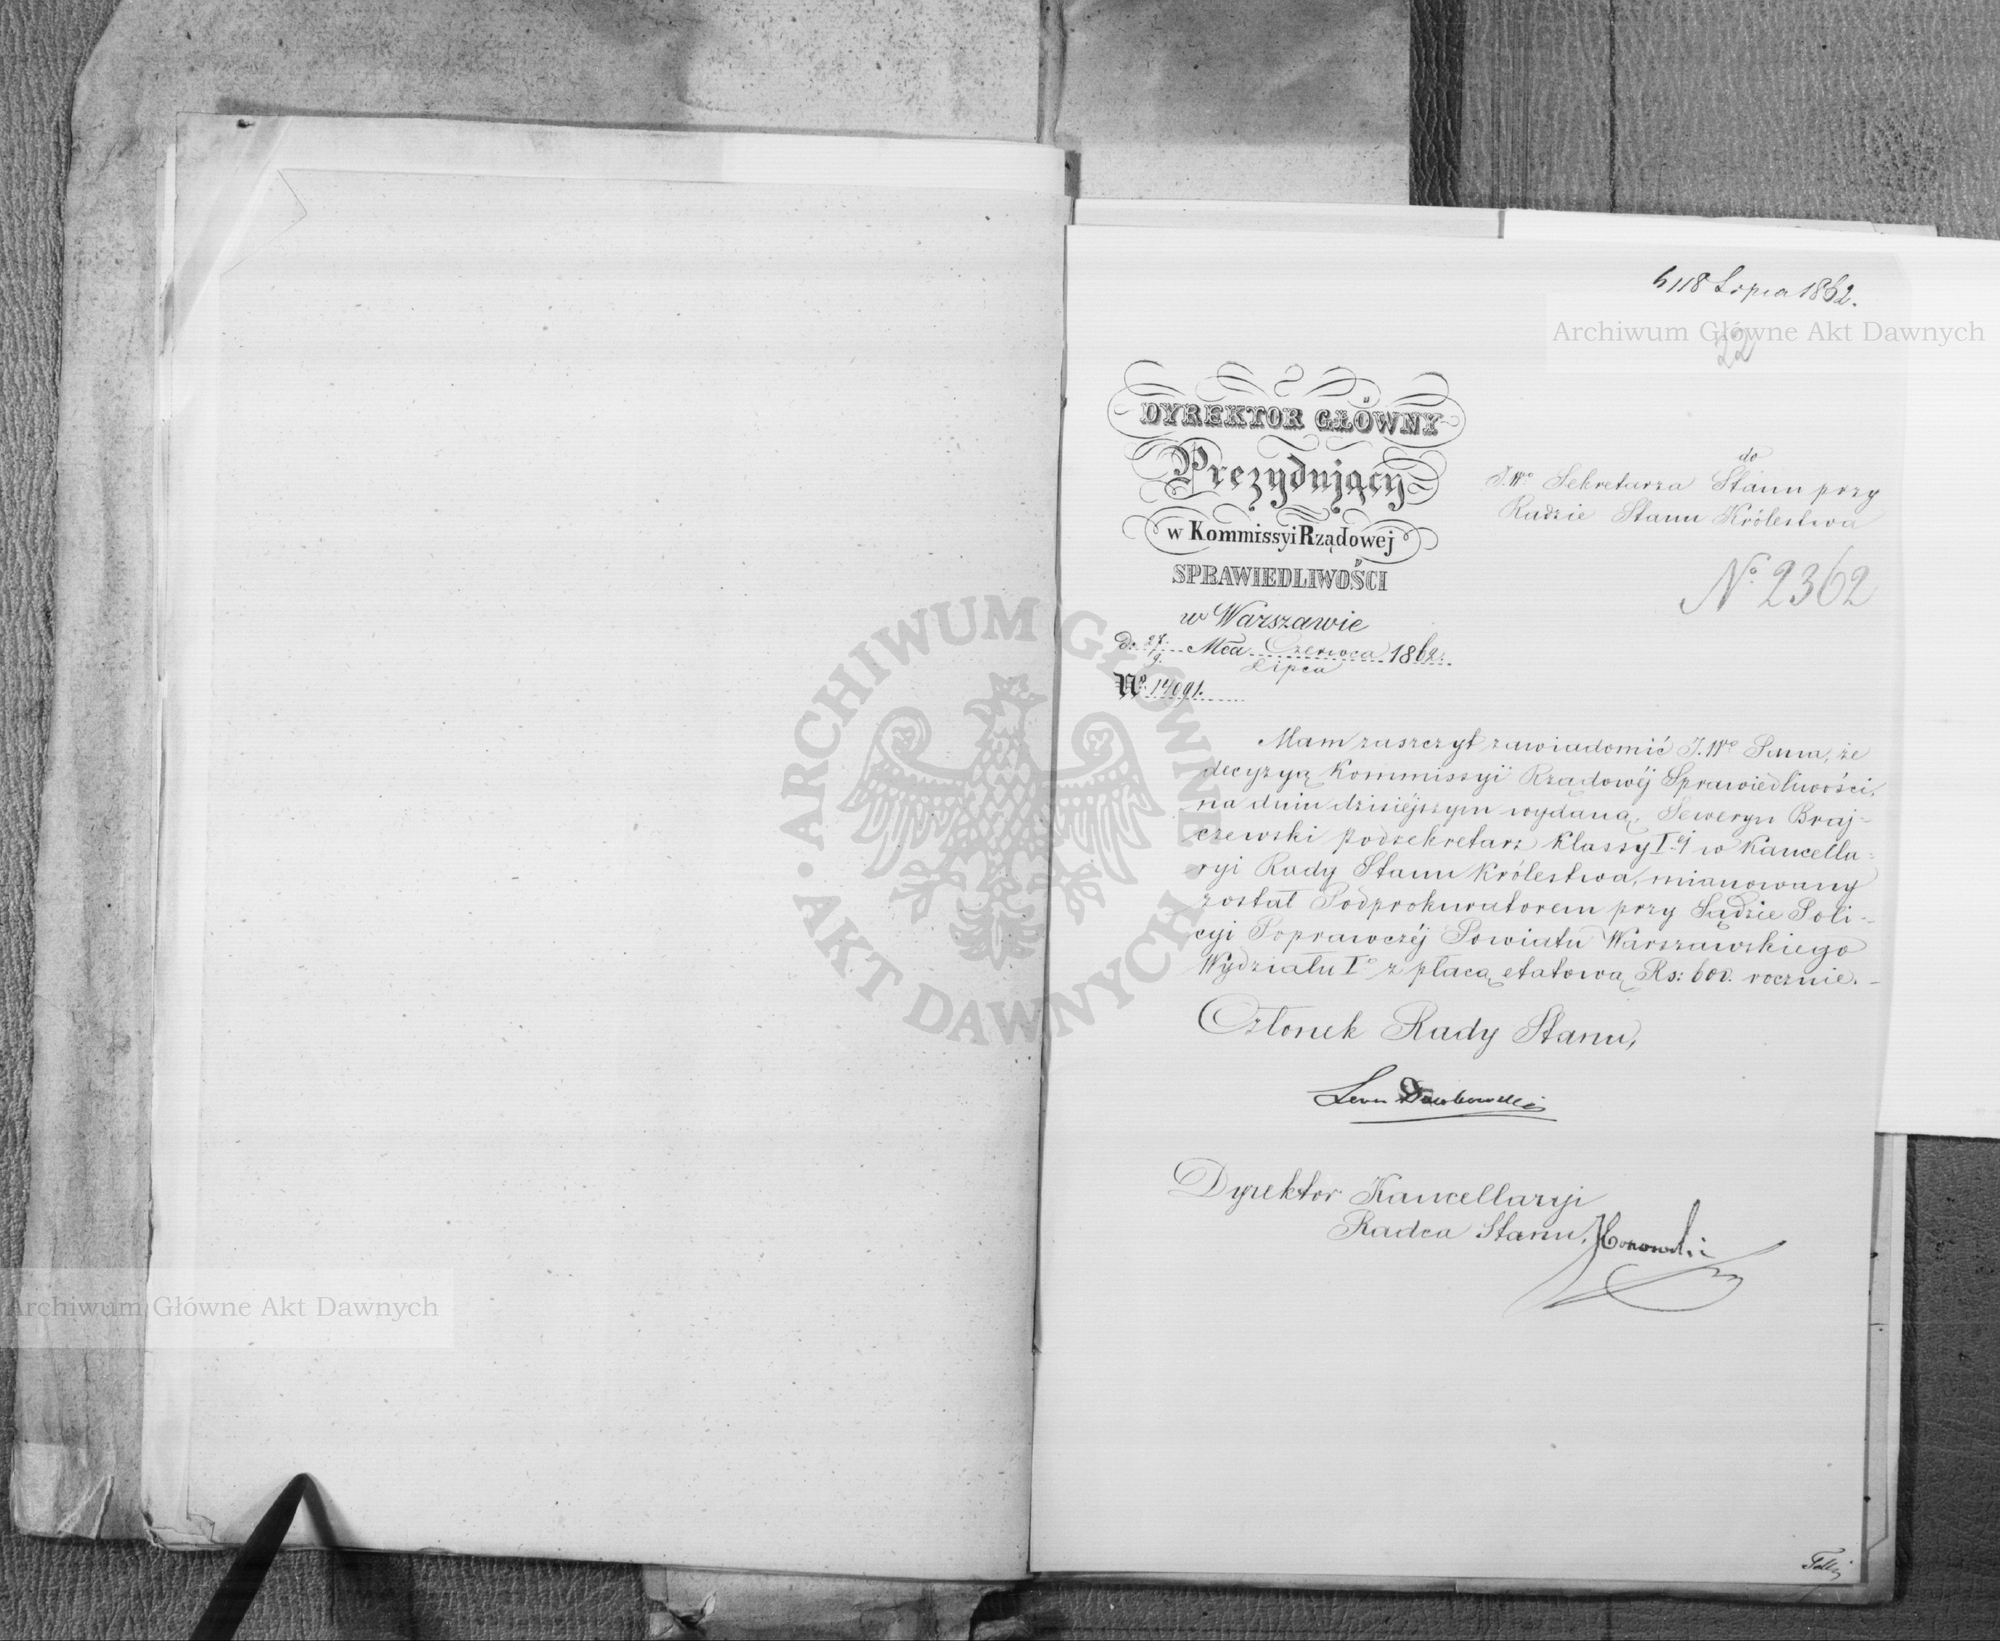 6/18 Lipca 1862.
22
DYREKTOR GŁÓWNY
Prezydujący
w Kommissyi Rządowej
SPRAWIEDLIWOŚCI
w Warszawie
D. 27/9 Mca Czerwca/Lipca 1862.
No. 14091.
do
J.Wo Sekretarza Stanu przy
Radzie Stanu Królestwa
No 2362
Mam zaszczyt zawiadomić J.Wo Pana, że
decyzyą Kommissyi Rządowéj Sprawiedliwości,
na dniu dzisiéjszym wydaną, Seweryn Braj-
czewski podsekretarz Klassy I-éj w Kancella-
ryi Rady Stanu Królestwa, mianowany
został Podprokuratorem przy Sądzie Poli-
cyi Poprawczéj Powiatu Warszawskiego
Wydziału Io z płacą etatową Rs: 600. rocznie.
Członek Rady Stanu,
Dyrektor Kancellaryi
Radca Stanu,
Archiwum Główne Akt Dawnych
Archiwum Główne Akt Dawnych
ARCHIWUM GŁÓWNE AKT DAWNYCH